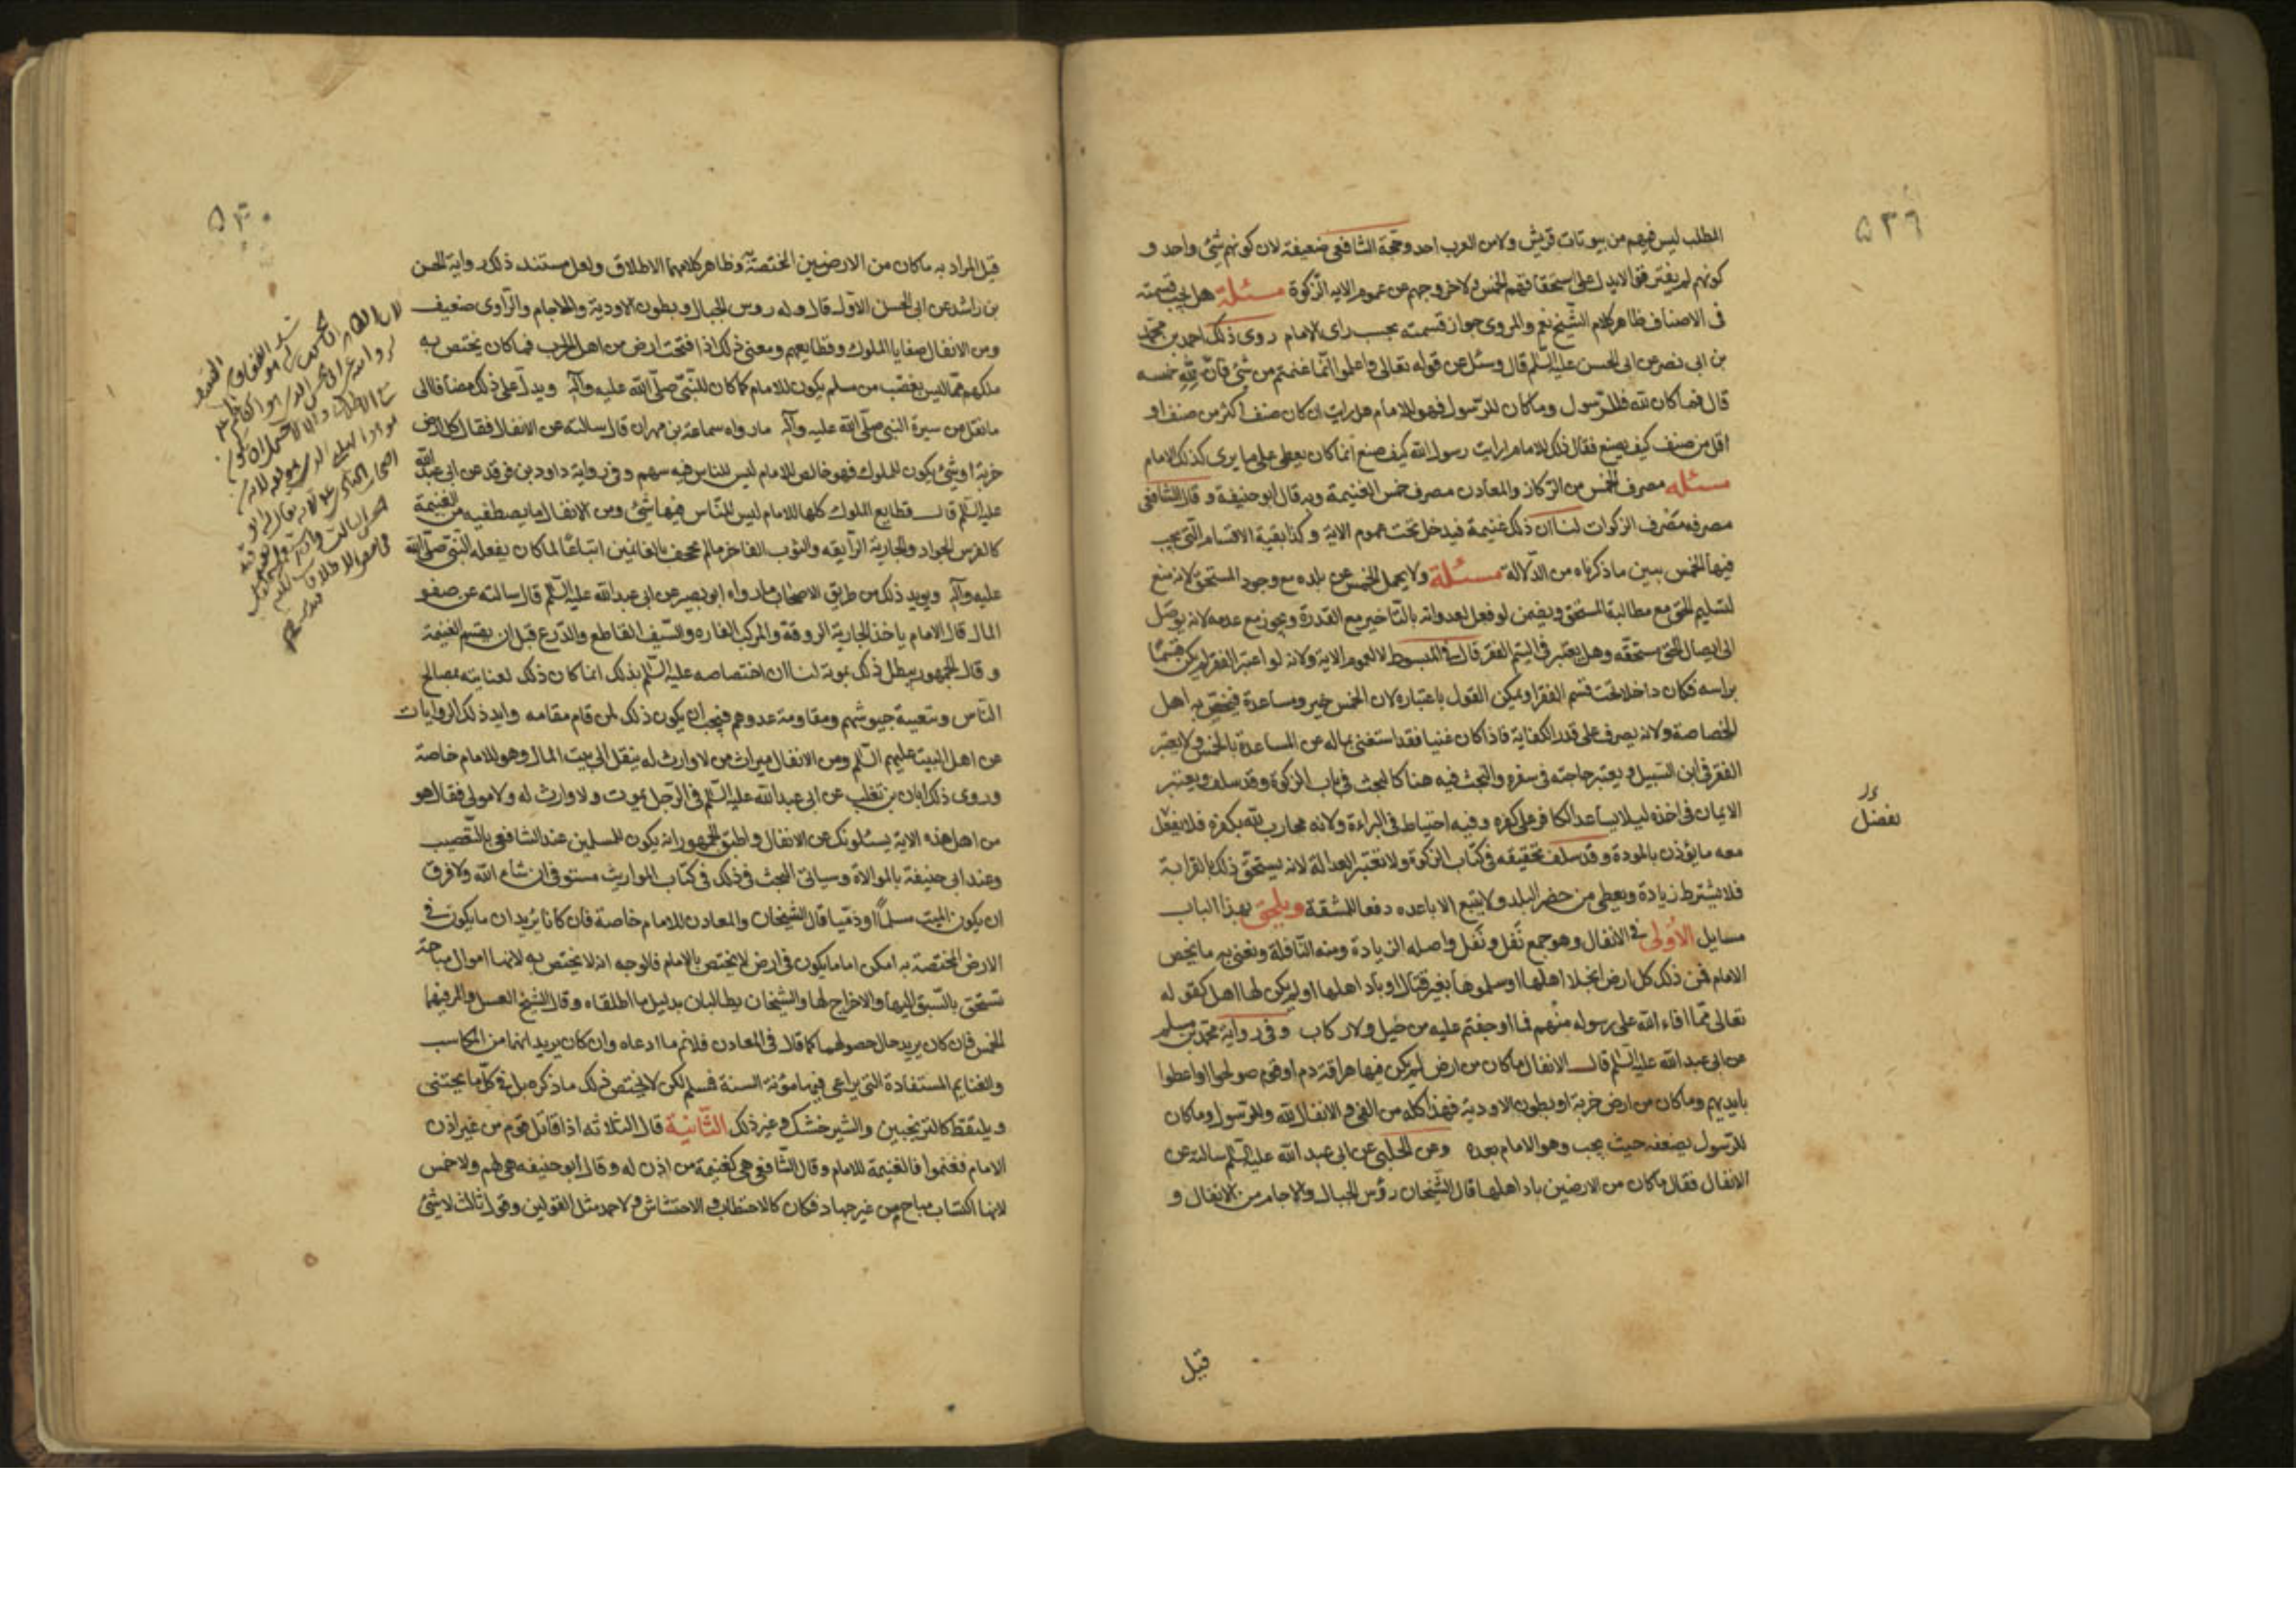 ٥٣٦
المطلب ليس فيهم من بيوتات قريش ولا من العرب احد وحجة الشافعي ضعيفة لان كونهم شيئ واحد و
كونهم لم يفترقوا لا يدل على استحقاقهم الخمس ولا خروجهم عن عموم الاية الزكوة مسئلة هل يجب قسمته
في الاصناف ظاهر كلام الشيخ نعم والمروى جواز قسمته بحسب راى الامام روى ذلك احمد بن محمد
بن ابى نصر عن ابى الحسن عليه السلم قال وسئل عن قوله تعالى واعلموا انما غنمتم من شئ فان لله خمسه
قال فما كان لله فللرسول وما كان للرسول فهو للامام هل رايت ان كان صنف اكثر من صنف او
اقل من صنف كيف يصنع فقال ذلك للامام ارايت رسول الله كيف صنع انما كان يعطى على ما يرى كذلك الامام
مسئله مصرف الخمس من الركاز والمعادن مصرف خمس الغنيمة وبه قال ابو حنيفة وقال الشافعى
مصرفه مصرف الزكوات لنا ان ذلك غنيمة فيدخل تحت عموم الاية وكذا بقية الاقسام التى يجب
فيها الخمس يبين ما ذكرناه من الدلالة مسئلة ولا يحمل الخمس عن بلده مع وجود المستحق لانه منع
لتسليم الحق مع مطالبة المستحق ويضمن لو فعل لعدوانه بالتاخير مع القدرة ويجوز مع عدمه لانه توصل
الى ايصال الحق مستحقه وهل يعتبر في اليتيم الفقر قال فى المبسوط لا لعموم الاية ولانه لو اعتبر الفقر لم يكن قسما
براسه فكان داخلا تحت قسم الفقرا ويمكن القول باعتباره لان الخمس خير ومساعدة فيختص به اهل
الخصاصة ولانه يصرف على قدر الكفاية فاذا كان غنيا فقد استغنى بماله عن المساعدة بالخمس ولا يعتبر
الفقر في ابن السبيل ويعتبر حاجته فى سفره والبحث فيه هنا كالبحث في باب الزكوة وقد سلف ويعتبر
الايمان فى اخذه ليلا يساعد الكافر على كفره وفيه احتياط فى البراءة ولانه محارب لله بكفره فلا يفعل
معه ما يؤذن بالمودة وقد سلف تحقيقه فى كتاب الزكوة ولا تعتبر العدالة لانه يستحق ذلك بالقرابة
فلا يشترط زيادة ويعطى من حضر البلد ولا يتبع الاباعده دفعا للمشقة ويلحق بهذا الباب
مسايل الاولى فى الانفال وهو جمع نفل ونفل واصله الزيادة ومنه النافلة ونعنى به ما يخص
الامام فمن ذلك كل ارض انجلا اهلها او سلموها بغير قتال او باد اهلها او لم يكن لها اهل كقوله
تعالى مما افاء الله على رسوله منهم فما اوجفتم عليه من خيل ولا ركاب وفى رواية محمد بن مسلم
عن ابى عبد الله عليه السلم قال الانفال ما كان من ارض لم يكن فيها هراقة دم او قوم صولحوا او اعطوا
بايديهم وما كان من ارض خربة او بطون الاودية فهذا كله من الفئ والانفال لله وللرسول وما كان
للرسول يضعه حيث يحب وهو للامام بعده وعن الحلبى عن ابى عبد الله عليه السلم سالته عن
الانفال فقال ما كان من الارضين باد اهلها قال الشيخان رؤس الجبال والاجام من الانفال و
قيل
قيل المراد به ما كان من الارضين المختصة وظاهر كلامهما الاطلاق ولعل مستند ذلك رواية الحسن
بن راشد عن ابى الحسن الاول قال وله روس الجبال وبطون الاودية والاجام والراوى ضعيف
ومن الانفال صفايا الملوك وقطايعهم ومعنى ذلك اذا فتحت ارض من اهل الحرب فما كان يختص به
ملكهم مما ليس بغصب من مسلم يكون للامام كما كان للنبى صلى الله عليه وآله ويدل على ذلك مضافا الى
ما نقل من سيرة النبى صلى الله عليه وآله ما رواه سماعة بن مهران قال سالته عن الانفال فقال كل ارض
خربة او شئ يكون للملوك فهو خالص للامام ليس للناس فيه سهم وفى رواية داود بن فرقد عن ابى عبد الله
عليه السلم قال قطايع الملوك كلها للامام ليس للناس فيها شئ ومن الانفال ما يصطفيه من الغنيمة
كالفرس الجواد والجارية الرايقه والثوب الفاخر ما لم يجحف بالغانمين اتباعا لما كان يفعله النبى صلى الله
عليه وآله ويويد ذلك من طريق الاصحاب ما رواه ابو بصير عن ابى عبد الله عليه السلم قال سالته عن صفو
المال قال الامام ياخذ الجارية الروقة والمركب الفاره والسيف القاطع والدرع قبل ان يقسم الغنيمة
وقال الجمهور يبطل ذلك بموته لنا ان اختصاصه عليه السلم بذلك انما كان ذلك لعنايته بمصالح
الناس وتعبية جيوشهم ومقاومة عدوهم فيجب ان يكون ذلك لمن قام مقامه وايد ذلك الروايات
عن اهل البيت عليهم السلم ومن الانفال ميراث من لا وارث له ينقل الى بيت المال وهو للامام خاصة
وروى ذلك ابان بن تغلب عن ابى عبد الله عليه السلم فى الرجل يموت ولا وارث له ولا مولى فقال هو
من اهل هذه الاية يسئلونك عن الانفال واطبق الجمهور انه يكون للمسلمين عند الشافعى بالتعصيب
وعند ابى حنيفة بالموالاة وسياتى البحث فى ذلك فى كتاب المواريث مستوفى ان شاء الله ولا فرق
ان يكون الميت مسلما او ذميا قال الشيخان والمعادن للامام خاصة فان كانا يريدان ما يكون فى
الارض المختصة به امكن اما ما يكون فى ارض لا يختص بالامام فالوجه انه لا يختص به لانها اموال مباحة
تستحق بالسبق اليها والاخراج لها والشيخان يطالبان بدليل ما اطلقاه وقال الشيخ العسل والمن فيهما
الخمس فان كان يريد حال حصولهما كما قال فى المعادن فلا نم ما ادعاه وان كان يريد انهما من المكاسب
والغنايم المستفادة التى يراعى فيها مؤنة السنة فسلم لكن لا يختص ذلك ما ذكره بل فى كل ما يجتنى
ويلتقط كالترنجبين والشيرخشك وغير ذلك الثانية قال الثلاثه اذا قاتل قوم من غير اذن
الامام فغنموا فالغنيمة للامام وقال الشافعى هى كغنيمة من اذن له وقال ابو حنيفه هى لهم ولا خمس
لانها اكتساب مباح من غير جهاد فكان كالاحتطاب والاحتشاش ولاحمد مثل القولين وقول ثالث لا شئ